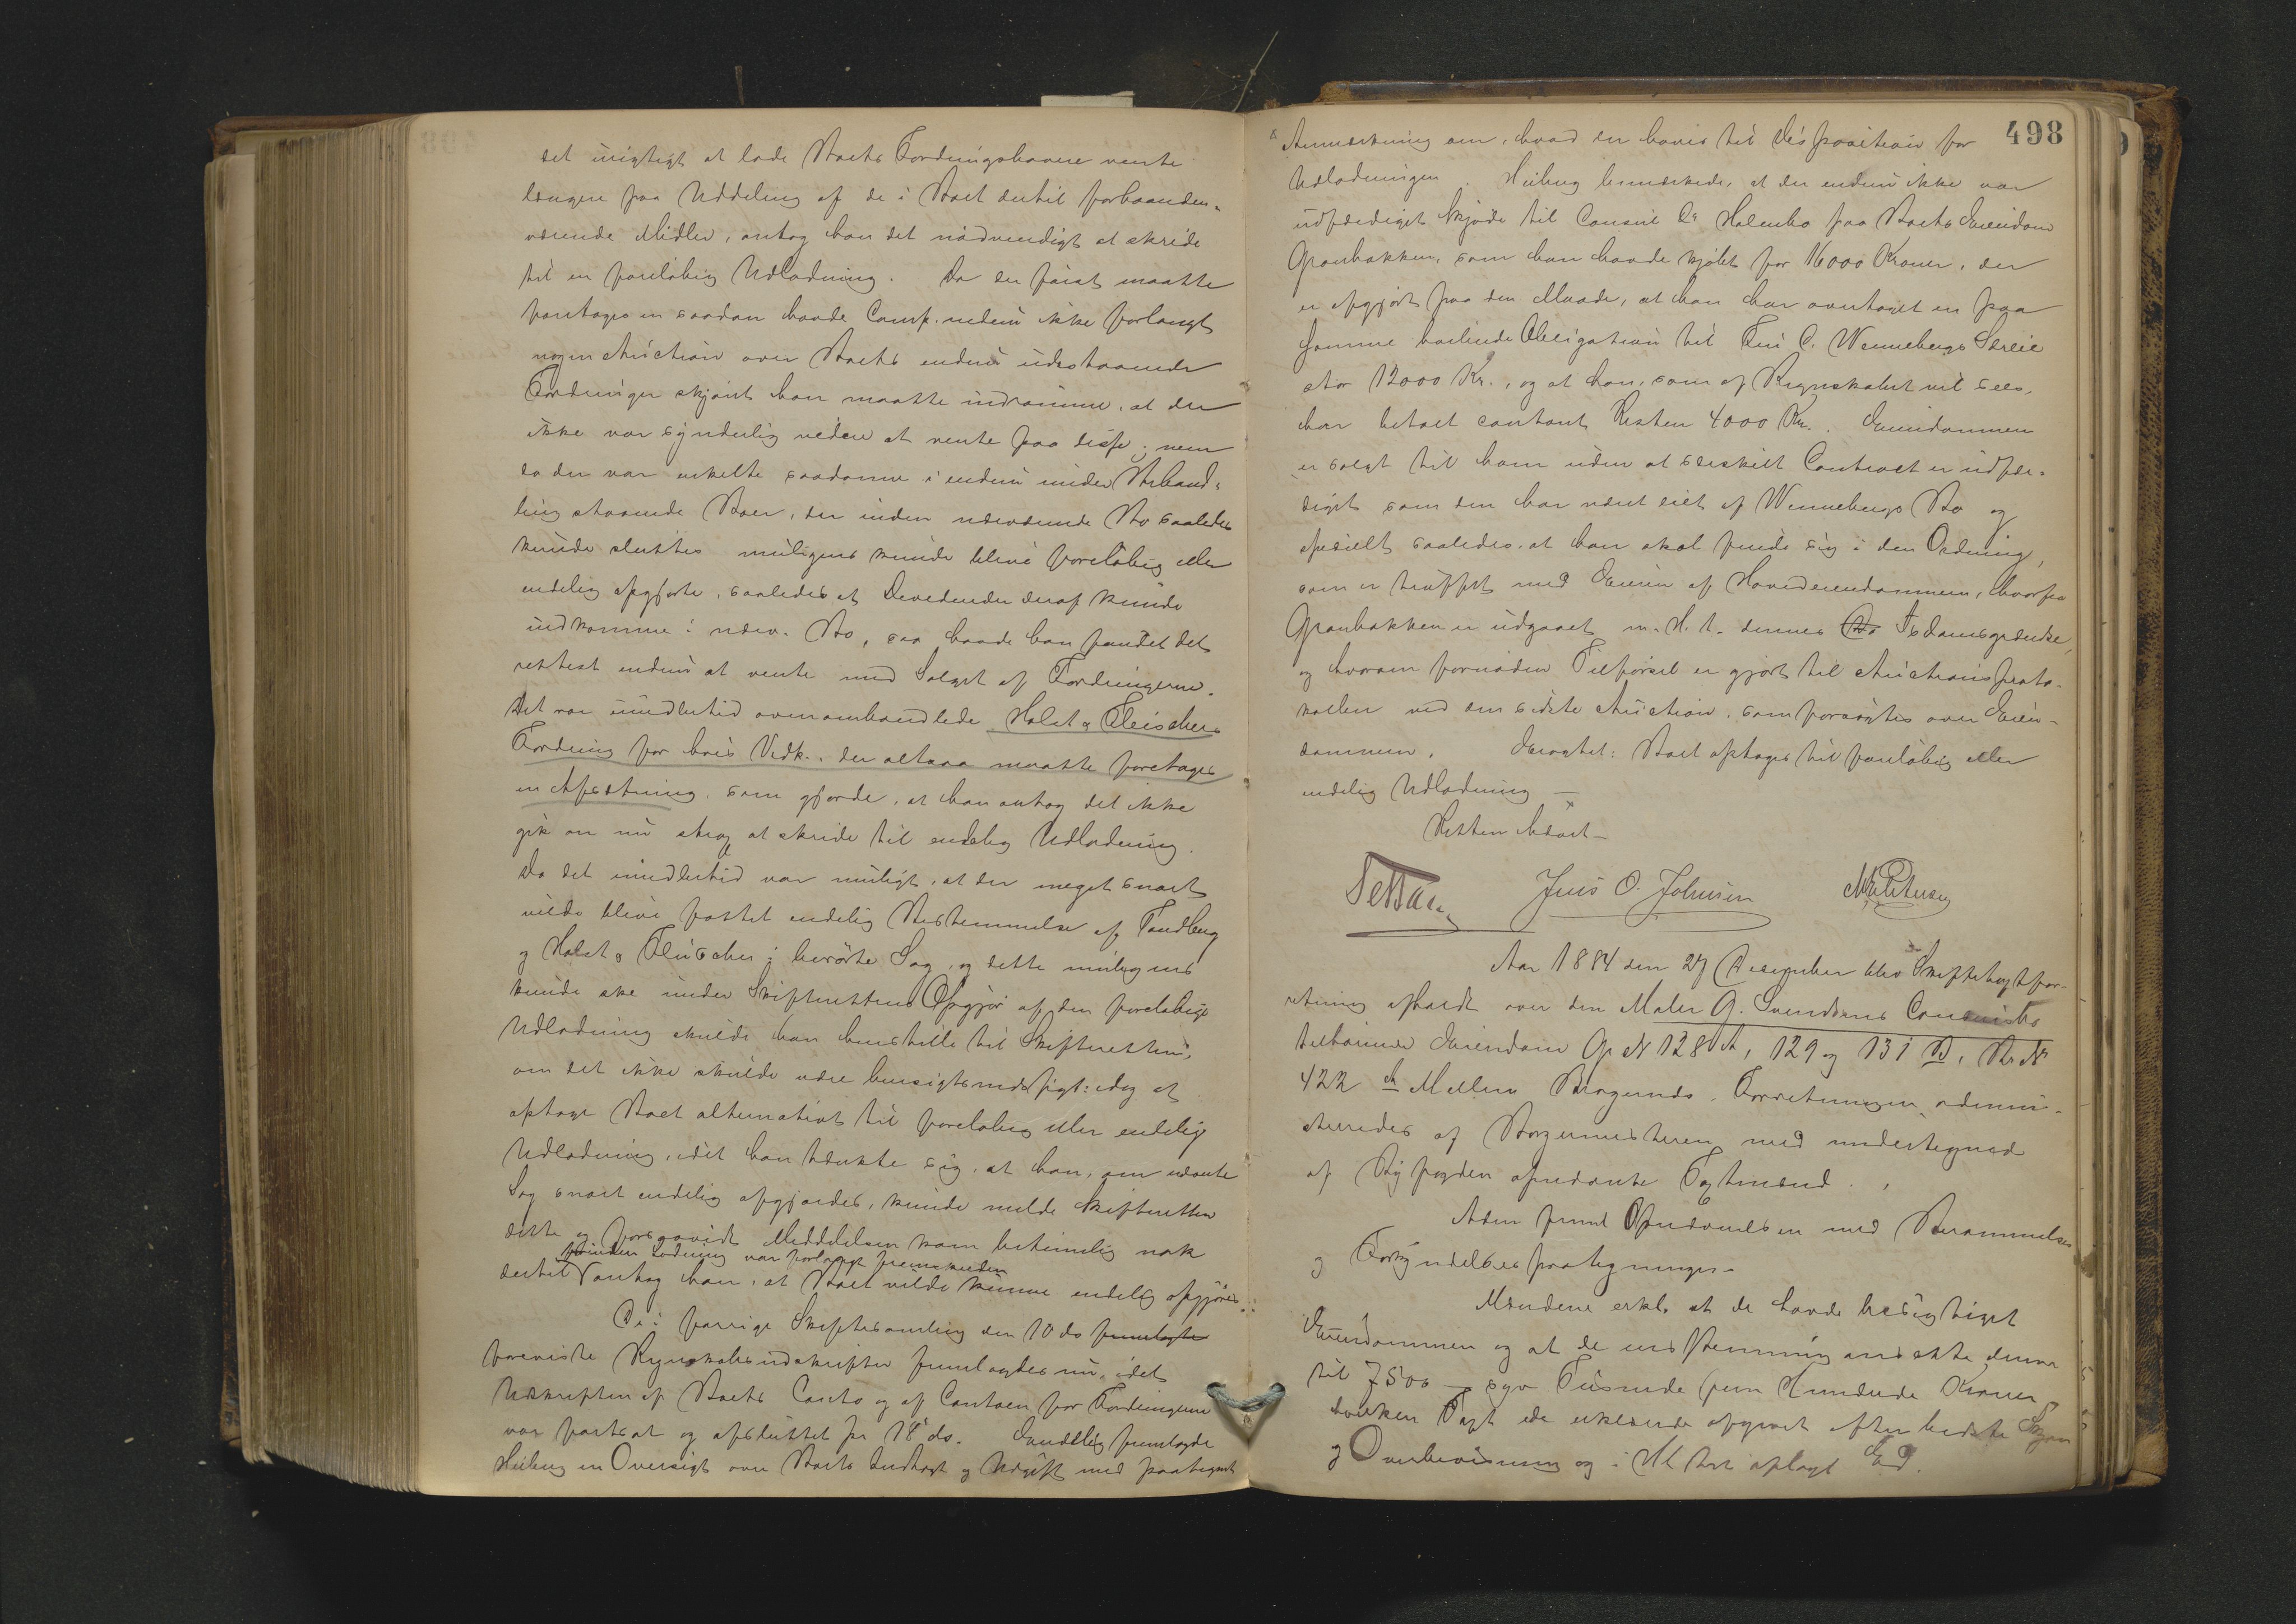 det urigtigt at lade Boets Fordringshavere vente
længere paa Uddeling af de i Boet dertil forhaanden-
værende Midler, antog han det nødvendigt at skride
til en foreløbig Udlodning. Da der først maatte
foretages en saadan havde Comp. endnu ikke forlangt
nogen Auction over Boets endnu udestaaende
Fordringer skjønt han maatte indrømme, at der
ikke var synderlig videre at vente paa disse; men
da der var enkelte saadanne i endnu under Behand-
ling staaende Boer, der inden nærværende Bo saaledes
kunde sluttes muligens kunde blive foreløbig eller
endelig opgjorte, saaledes at Devidender deraf kunde
indkomme i nærv. Bo, saa havde han fundet det
rettest endnu at vente med Salget af Fordringerne.
Det var imidlertid ovenomhandlede Holst & Fleischers
Fordring for hvis Vedk. der altsaa maatte foretages
en Afsætning, som gjorde, at han antog det ikke
gik an nu strax at skride til endelig Udlodning.
Da det imidlertid var muligt, at der meget snart
vilde blive fattet endelig Bestemmelse af Tandberg
og Holst & Fleischer i berørte Sag, og dette muligens
kunde ske under Skifterettens Opgjør af den foreløbige
Udlodning skulde han henstille til Skifteretten,
om det ikke skulde være hensigtsmæssigt idag at
optage Boet alternativt til foreløbig eller endelig
Udlodning, idet han tænkte sig, at han, om nævnte
Sag snart endelig afgjordes, kunde melde Skifteretten
dette og forsaavidt Meddelelsen kom betimelig nok
forinden Lodning var forlangt fremskreden
dertil antog han, at Boet vilde kunne endelig opgjøres.
De i forrige Skiftesamling den 10 ds fremlagte
foreviste Regnskabsudskrifter fremlagdes nu, idet
Udskriften af Boets Conto og af Contoen for Fordringerne
var fortsat og afsluttet pr 18 ds. Endelig fremlagde
Heiberg en Oversigt over Boets Indtægt og Udgift med paategnet
498
Anmærkning om, hvad der haves til Disposition for
Udlodningen. Heiberg bemærkede, at der endnu ikke var
udfærdiget Skjøde til Consul Holmbo paa Boets Eiendom
Granbakken, som han havde kjøbt for 16000 Kroner, der
er opgjort paa den Maade, at han har overtaget en paa
samme heftende Obligation til Fru C. Wennebergs Særeie
stor 12000 Kr., og at han, som af Regnskabet vil sees,
har betalt contant Resten 4000 Kr. Eiendommen
er solgt til ham uden at særskilt Contract er udfær-
diget som den har været eiet af Wennebergs Bo og
specielt saaledes, at han skal finde sig i den Ordning,
som er truffet med Eieren af Hovedeiendommen, hvorfra
Granbakken er udgaaet m. H. t. dennes Bo Eiendomsgrændse,
og hvorom fornøden Tilførsel er gjort til Auctionsproto-
kollen ved den sidste Auction, som forsøgtes over Eien-
dommen. Eragtet: Boet optages til foreløbig eller
endelig Udlodning —
Retten hævet —
Jens O. Johnsen
Aar 1884 den 27 December blev Skiftetaxtfor-
retning afholdt over den Maler G. Svendsens Concursbo
tilhørende Eiendom Gr N 128 A, 129 og 131 B, Br N
422 Mellem Bragernes. Forretningen admini-
streredes af Borgermesteren med undertegnede
af Byfogden opnævnte Taxtmænd.
Adm freml Opnævnelsen med Berammelses
og Forkyndelsespaategninger.
Mændene erkl. at de havde besigtiget
Eiendommen og at de ved Stemning ansatte denne
til 7500 — syv Tusinde fem Hundrede Kroner,
hvilken Taxt de erklærede afgivet efter bedste Skjøn
og Overbevisning og i Hht til aflagt Ed.